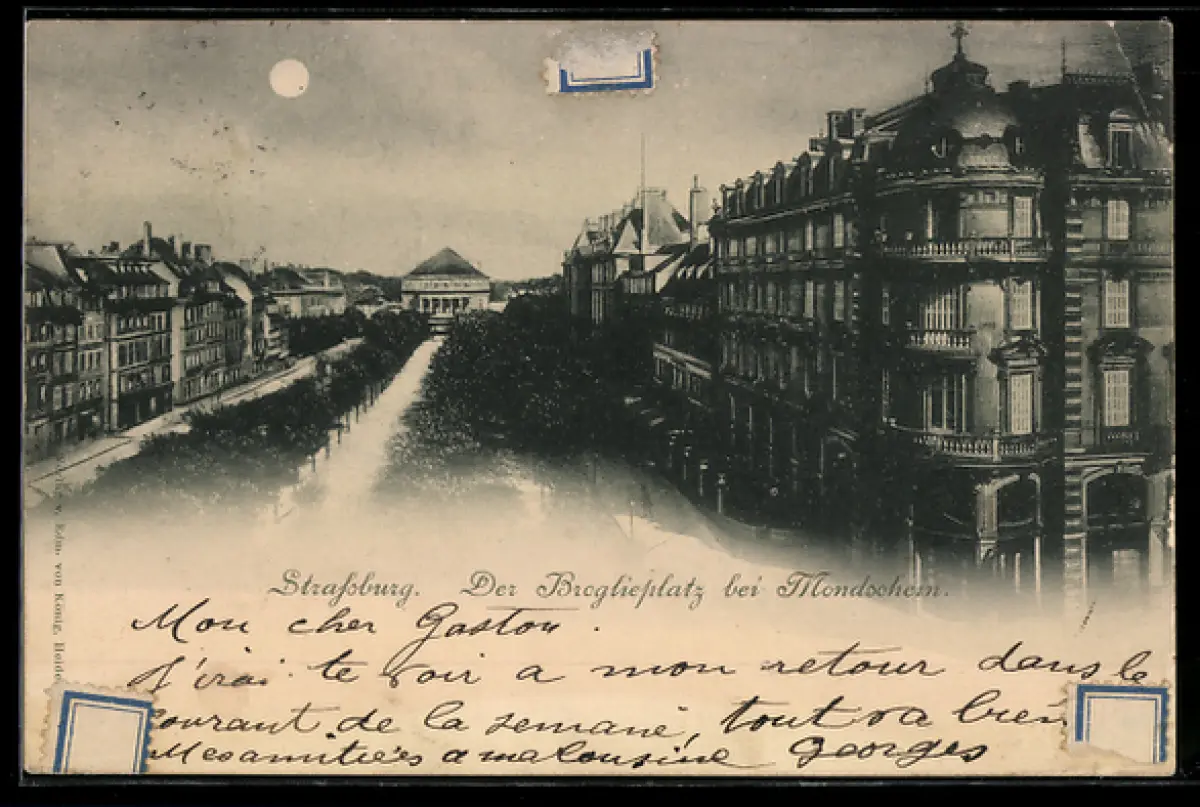 Straßburg. Der Broglieplatz bei Mondschein.
Mon cher Gaston.
J'irai te voir a mon retour dans le
courant de la semaine, tout va bien
Mes amitiées a ma cousine Georges
v. Edm. von König, Heide